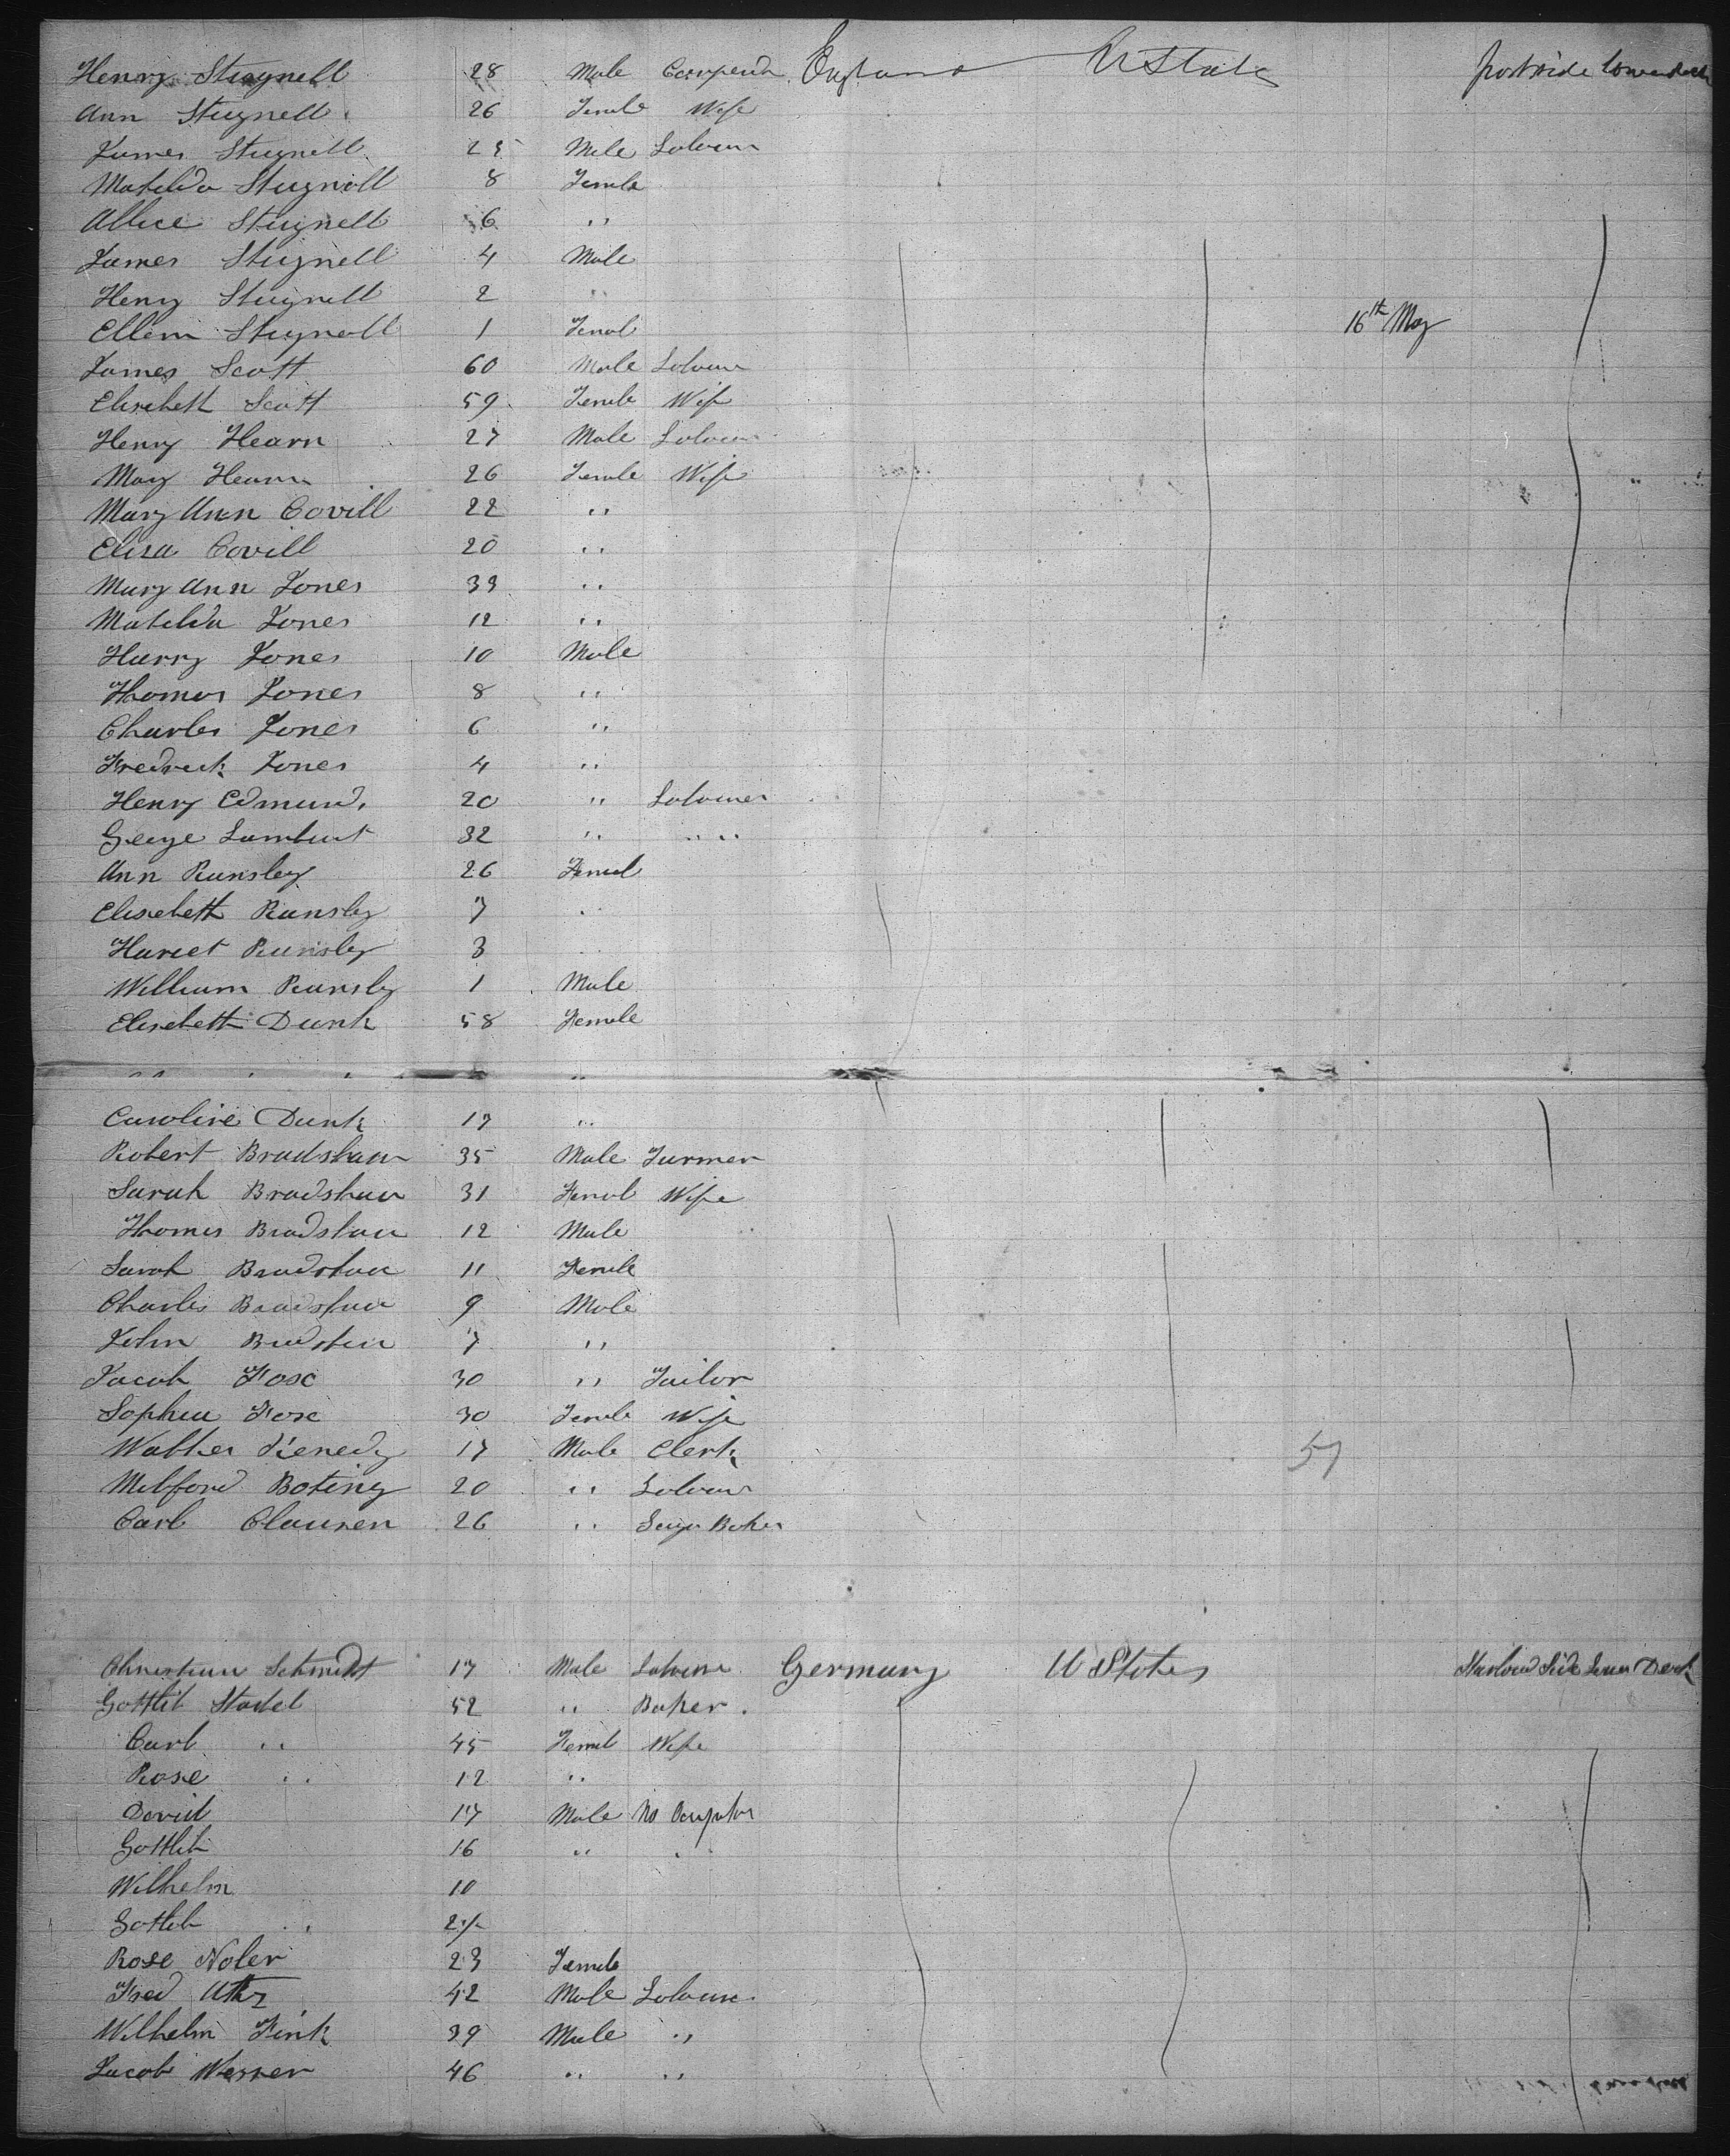 Henry Stugnell 28 Male Carpend England U State portside lowerdeck
Ann Stugnell 26 Femele Wife
James Stugnell 25 Male Laborer
Matilda Stugnell 8 Female
Allice Stugnell 6 "
James Stugnell 4 Male
Henry Stugnell 2 "
Ellen Stugnell 1 Femal 16th May
James Scott 60 Male Laborer
Elisebeth Scott 59 Femele Wife
Henry Hearn 27 Male Laborer
Mary Hearn 26 Female Wife
Mary Ann Covill 22 "
Elisa Covill 20 "
Mary Ann Jones 39 "
Matilda Jones 12 "
Harry Jones 10 Male
Thomas Jones 8 "
Charles Jones 6 "
Fredrick Jones 4 "
Henry Edmund 20 " Laborer
George Lambert 32 " "
Ann Runsley 26 Femal
Elisebeth Runsley 7 "
Hariet Runsley 3
William Runsley 1 Male
Elisebeth Dunk 58 Female
Caroline Dunk 17 "
Robert Bradshaw 35 Male Farmer
Sarah Bradshaw 31 Femal Wife
Thomas Bradshaw 12 Male
Sarah Bradshaw 11 Female
Charles Bradshaw 9 Male
John Bradshaw 7 "
Jacob Fose 30 " Tailor
Sophia Fose 30 Femele Wife
Walther Kenedy 17 Male Clerk
57
Milford Boting 20 " Laborer
Carl Clausen 26 " Baker
Christian Schmidt 17 Male Laborer Germany U States Starboard Side Lower Deck
Gottlib Stadel 52 " Baker
Carl " 45 Femel Wife
Rose " 12 "
David 17 Male No Ocupation
Gottlib 16 " "
Wilhelm 10
Gottlib " 2
Rose Noler 23 Female
Fred 42 Male Laborer
Wilhelm Fink 39 Male "
Jacob Werner 46 " "